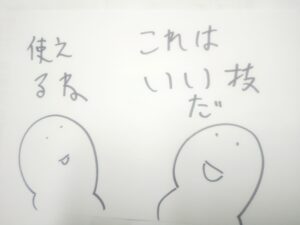 これは
いい技
だ
使え
るね